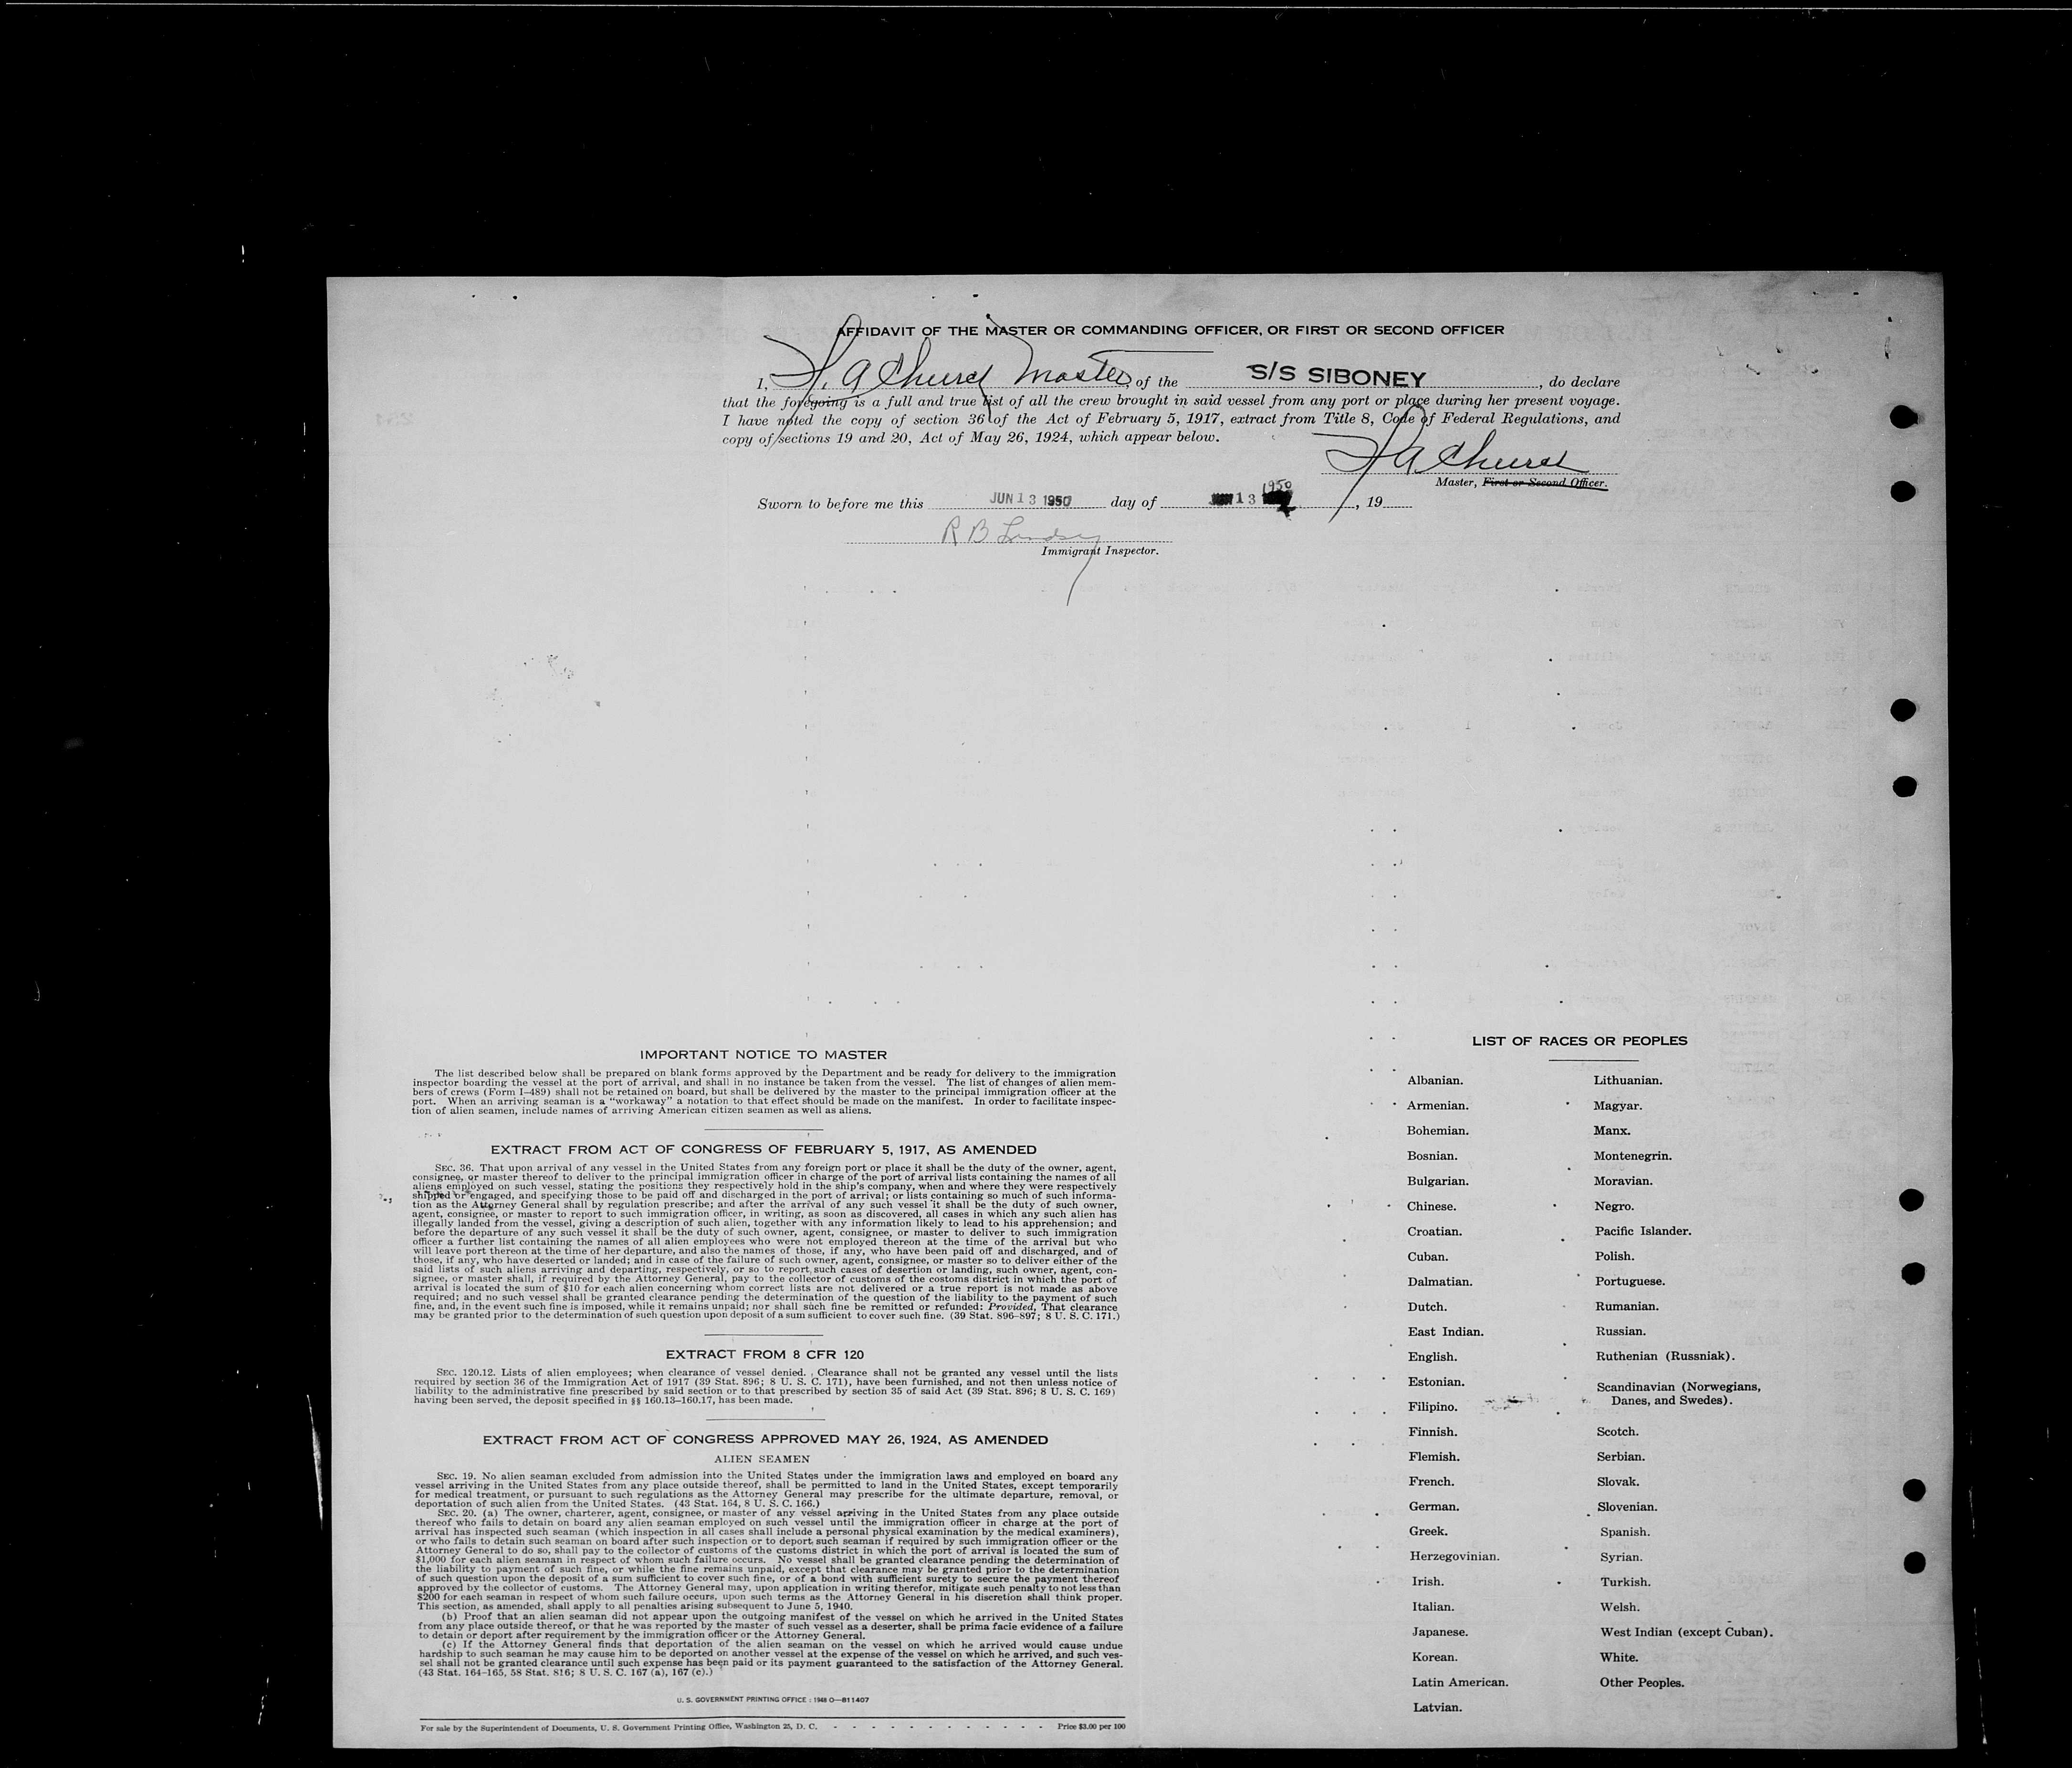 AFFIDAVIT OF THE MASTER OR COMMANDING OFFICER, OR FIRST OR SECOND OFFICER
I, A Church Master, of the S/S SIBONEY, do declare
that the foregoing is a full and true list of all the crew brought in said vessel from any port or place during her present voyage.
I have noted the copy of section 36 of the Act of February 5, 1917, extract from Title 8, Code of Federal Regulations, and
copy of sections 19 and 20, Act of May 26, 1924, which appear below.
A Church
Master, First or Second Officer.
1950
Sworn to before me this JUN 13 1950 day of JUN 13, 19
R B Lindsey
Immigrant Inspector.
IMPORTANT NOTICE TO MASTER
The list described below shall be prepared on blank forms approved by the Department and be ready for delivery to the immigration
inspector boarding the vessel at the port of arrival, and shall in no instance be taken from the vessel. The list of changes of alien mem-
bers of crews (Form I-489) shall not be retained on board, but shall be delivered by the master to the principal immigration officer at the
port. When an arriving seaman is a "workaway" a notation to that effect should be made on the manifest. In order to facilitate inspec-
tion of alien seamen, include names of arriving American citizen seamen as well as aliens.
EXTRACT FROM ACT OF CONGRESS OF FEBRUARY 5, 1917, AS AMENDED
SEC. 36. That upon arrival of any vessel in the United States from any foreign port or place it shall be the duty of the owner, agent,
consignee, or master thereof to deliver to the principal immigration officer in charge of the port of arrival lists containing the names of all
aliens employed on such vessel, stating the positions they respectively hold in the ship's company, when and where they were respectively
shipped or engaged, and specifying those to be paid off and discharged in the port of arrival; or lists containing so much of such informa-
tion as the Attorney General shall by regulation prescribe; and after the arrival of any such vessel it shall be the duty of such owner,
agent, consignee, or master to report to such immigration officer, in writing, as soon as discovered, all cases in which any such alien has
illegally landed from the vessel, giving a description of such alien, together with any information likely to lead to his apprehension; and
before the departure of any such vessel it shall be the duty of such owner, agent, consignee, or master to deliver to such immigration
officer a further list containing the names of all alien employees who were not employed thereon at the time of the arrival but who
will leave port thereon at the time of her departure, and also the names of those, if any, who have been paid off and discharged, and of
those, if any, who have deserted or landed; and in case of the failure of such owner, agent, consignee, or master so to deliver either of the
said lists of such aliens arriving and departing, respectively, or so to report such cases of desertion or landing, such owner, agent, con-
signee, or master shall, if required by the Attorney General, pay to the collector of customs of the costoms district in which the port of
arrival is located the sum of $10 for each alien concerning whom correct lists are not delivered or a true report is not made as above
required; and no such vessel shall be granted clearance pending the determination of the question of the liability to the payment of such
fine, and, in the event such fine is imposed, while it remains unpaid; nor shall such fine be remitted or refunded: Provided, That clearance
may be granted prior to the determination of such question upon deposit of a sum sufficient to cover such fine. (39 Stat. 896-897; 8 U. S. C. 171.)
EXTRACT FROM 8 CFR 120
SEC. 120.12. Lists of alien employees; when clearance of vessel denied. Clearance shall not be granted any vessel until the lists
required by section 36 of the Immigration Act of 1917 (39 Stat. 896; 8 U. S. C. 171), have been furnished, and not then unless notice of
liability to the administrative fine prescribed by said section or to that prescribed by section 35 of said Act (39 Stat. 896; 8 U. S. C. 169)
having been served, the deposit specified in §§ 160.13-160.17, has been made.
EXTRACT FROM ACT OF CONGRESS APPROVED MAY 26, 1924, AS AMENDED
ALIEN SEAMEN
SEC. 19. No alien seaman excluded from admission into the United States under the immigration laws and employed on board any
vessel arriving in the United States from any place outside thereof, shall be permitted to land in the United States, except temporarily
for medical treatment, or pursuant to such regulations as the Attorney General may prescribe for the ultimate departure, removal, or
deportation of such alien from the United States. (43 Stat. 164, 8 U. S. C. 166.)
SEC. 20. (a) The owner, charterer, agent, consignee, or master of any vessel arriving in the United States from any place outside
thereof who fails to detain on board any alien seaman employed on such vessel until the immigration officer in charge at the port of
arrival has inspected such seaman (which inspection in all cases shall include a personal physical examination by the medical examiners),
or who fails to detain such seaman on board after such inspection or to deport such seaman if required by such immigration officer or the
Attorney General to do so, shall pay to the collector of customs of the customs district in which the port of arrival is located the sum of
$1,000 for each alien seaman in respect of whom such failure occurs. No vessel shall be granted clearance pending the determination of
the liability to payment of such fine, or while the fine remains unpaid, except that clearance may be granted prior to the determination
of such question upon the deposit of a sum sufficient to cover such fine, or of a bond with sufficient surety to secure the payment thereof
approved by the collector of customs. The Attorney General may, upon application in writing therefor, mitigate such penalty to not less than
$200 for each seaman in respect of whom such failure occurs, upon such terms as the Attorney General in his discretion shall think proper.
This section, as amended, shall apply to all penalties arising subsequent to June 5, 1940.
(b) Proof that an alien seaman did not appear upon the outgoing manifest of the vessel on which he arrived in the United States
from any place outside thereof, or that he was reported by the master of such vessel as a deserter, shall be prima facie evidence of a failure
to detain or deport after requirement by the immigration officer or the Attorney General.
(c) If the Attorney General finds that deportation of the alien seaman on the vessel on which he arrived would cause undue
hardship to such seaman he may cause him to be deported on another vessel at the expense of the vessel on which he arrived, and such ves-
sel shall not be granted clearance until such expense has been paid or its payment guaranteed to the satisfaction of the Attorney General.
(43 Stat. 164-165, 58 Stat. 816; 8 U. S. C. 167 (a), 167 (e).)
U. S. GOVERNMENT PRINTING OFFICE : 1948 O—811407
For sale by the Superintendent of Documents, U. S. Government Printing Office, Washington 25, D. C. - - - - - - - - - - - - Price $3.00 per 100
LIST OF RACES OR PEOPLES
Albanian.
Armenian.
Bohemian.
Bosnian.
Bulgarian.
Chinese.
Croatian.
Cuban.
Dalmatian.
Dutch.
East Indian.
English.
Estonian.
Filipino.
Finnish.
Flemish.
French.
German.
Greek.
Herzegovinian.
Irish.
Italian.
Japanese.
Korean.
Latin American.
Latvian.
Lithuanian.
Magyar.
Manx.
Montenegrin.
Moravian.
Negro.
Pacific Islander.
Polish.
Portuguese.
Rumanian.
Russian.
Ruthenian (Russniak).
Scandinavian (Norwegians,
Danes, and Swedes).
Scotch.
Serbian.
Slovak.
Slovenian.
Spanish.
Syrian.
Turkish.
Welsh.
West Indian (except Cuban).
White.
Other Peoples.